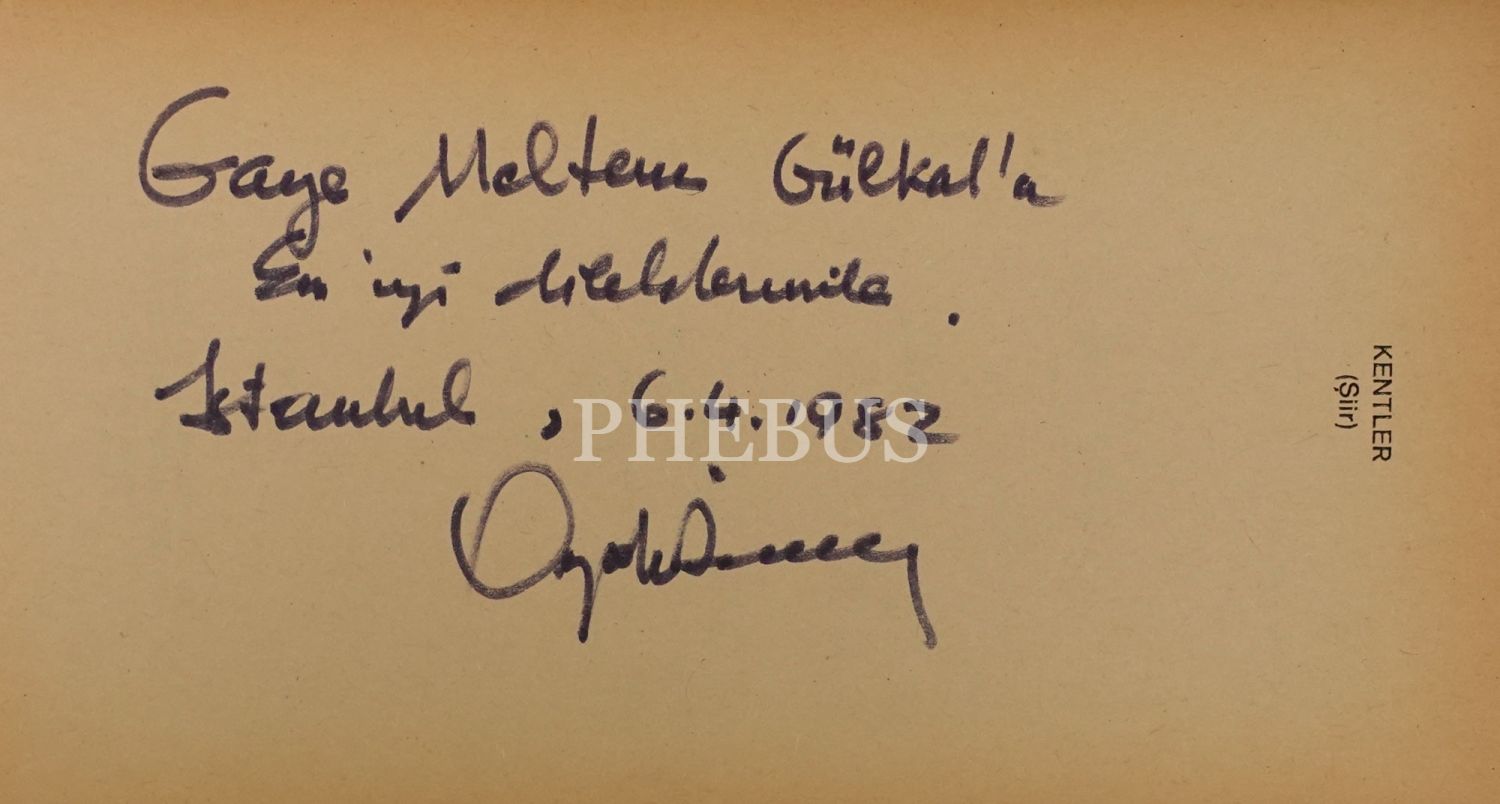 Gaye Meltem Gülkal'a
En iyi dileklerimle.
İstanbul, 6.4.1982
PHEBUS
KENTLER
(Şiir)